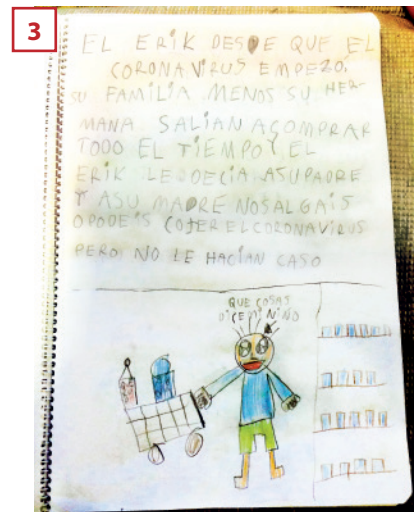 3
EL ERIK DESDE QUE EL
CORONAVIRUS EMPEZO.
SU FAMILIA MENOS SU HER-
MANA SALIAN ACOMPRAR
TODO EL TIEMPO Y EL
ERIK LE DECIA ASUPADRE
Y ASU MADRE NOSALGAIS
OPODEIS COJER ELCORONAVIRUS
PERO NO LE HACIAN CASO
QUE COSAS
DICE MI NIÑO